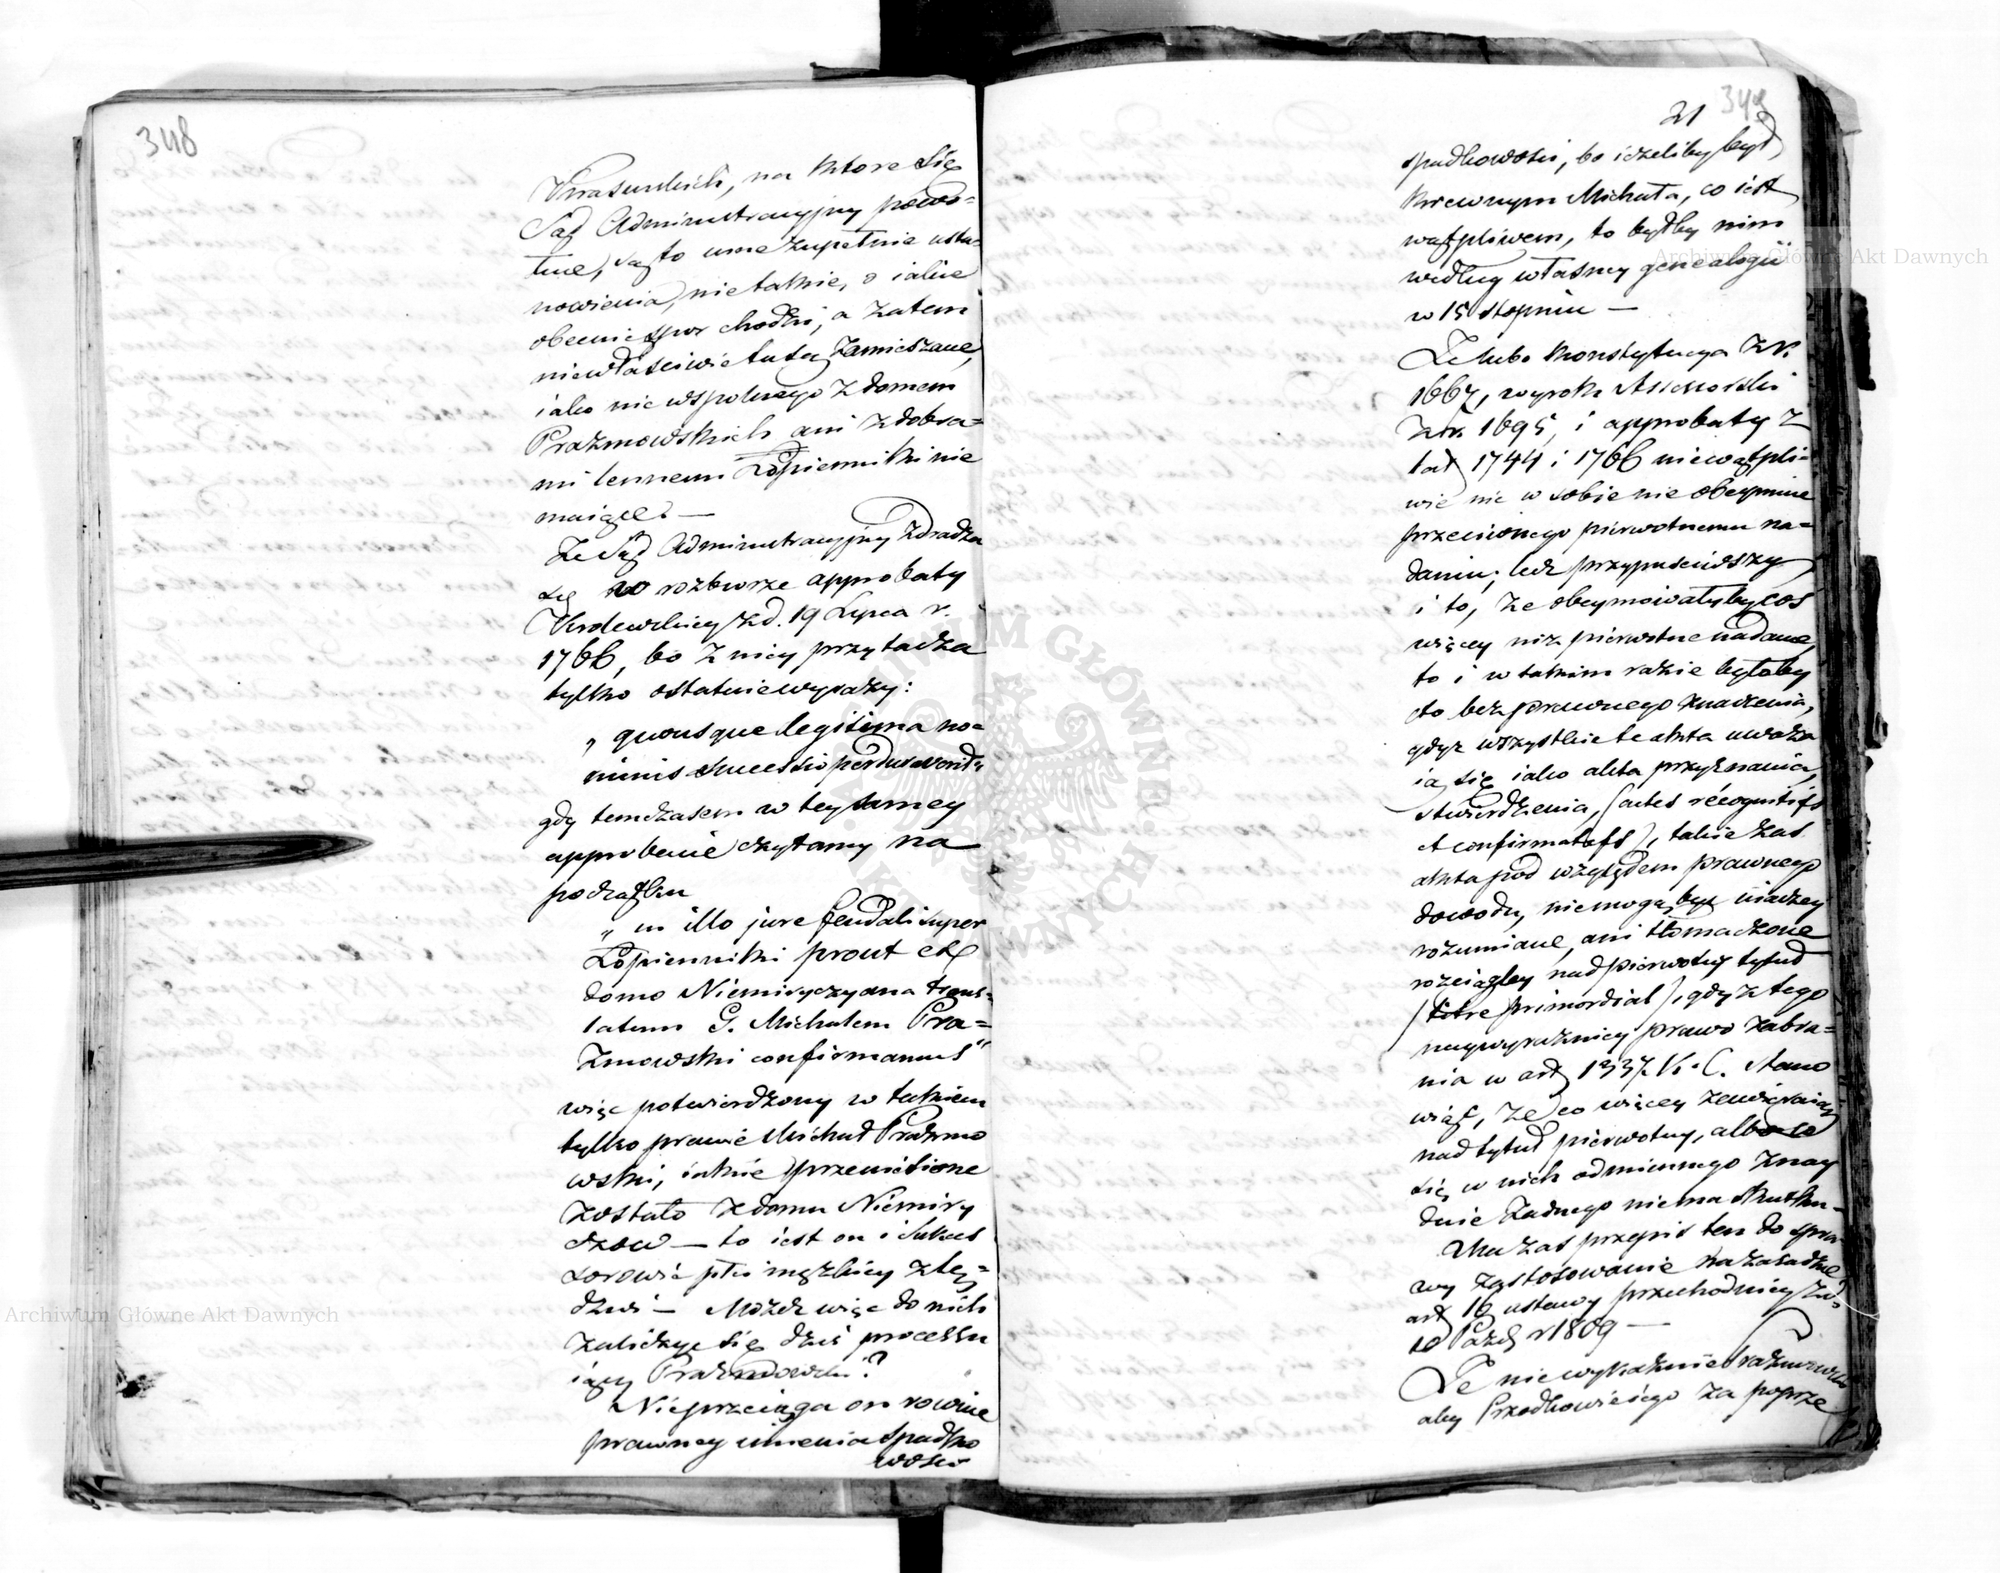 348
Krasuskich, na ktore się
Sąd Administracyjny powo-
łuie, są to inne zupełnie usta-
nowienia, nie takie, o iakie
obecnie spor chodzi, a zatem
niewłaściwie tutaj zamieszane,
iako nic wspolnego z domem
Prażmowskich ani z dobra-
mi lennemi Łopiennikinie
maiące. —
Że Sąd Administracyjny zdradza
się w rozbiorze approbaty
Krolewskiey z d. 19 Lipca r.
1766, bo z niey przytacza
tylko ostatnie wyrazy:
„quousque legitima no-
minis successio perduraverit„
gdy temczasem w tey samey
approbacie czytamy na
początku
„in illo jure feudali super
Łopienniki prout ex
domo Niemiryczyana trans-
latum G. Michalem Pra-
żmowski confirmamus"
więc potwierdzony w takiem
tylko prawie Michał Prażmo
wski, iakie przeniesione
zostało z domu Niemiry
czow — to iest on i Sukces
sorowie płci męzkiey z lę-
dzwi — Możesz więc do nich
zaliczyć się dziś processu
iący Prażmowski?
Nieprzeciąga on rowine
prawney imienia spadko
wości
21 349
spadkowości, bo ieżeliby był
krewnym Michała, co iest
wątpliwem, to byłby nim
według własney genealogii
w 15 stopniu —
Że lubo konstytucya z r.
1667, wyrok Assessorski
z r. 1695, i approbaty z
lat 1744 i 1766 niewątpli-
wie nic w sobie nie obeymuie
przeciwnego pierwotnemu na-
daniu; lecz przypuściwszy
i to, że obeymowałyby coś
więcey niż pierwotne nadanie,
to i w takim razie byłoby
to bez prawnego znaczenia,
gdyż wszystkie te akta uważa
ią się iako akta przyznania,
stwierdzenia, (actes récognitifs
et confirmatifs), takie zas
akta pod względem prawnego
dowodu, niemogą być inaczey
rozumiane, ani tłomaczone
rozciągley nad pierwotny tytuł
(titre primordial), gdyż tego
naywyraźniey prawo zabra-
nia w art 1337 K. C. stano
wiąc, że co więcey zawieraią
nad tytuł pierwotny, albo co
się w nich odmiennego znay
duie żadnego niema skutku —
Ma zaś przepis ten do spra-
wy zastosowanie na zasadzie
art 16 ustawy przechodniey z d.
10 Paźdz r 1809 —
Że nie wykaźnie Prażmowski
aby Przodkowie iego za poprze